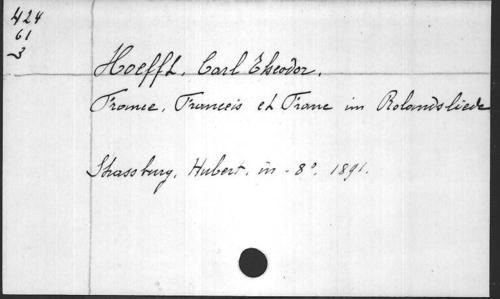 424
61
3
Hoefft, Carl Theodor.
France, Franceis et Franc im Rolandsliede
Strassburg, Hubert, in-8°, 1891.